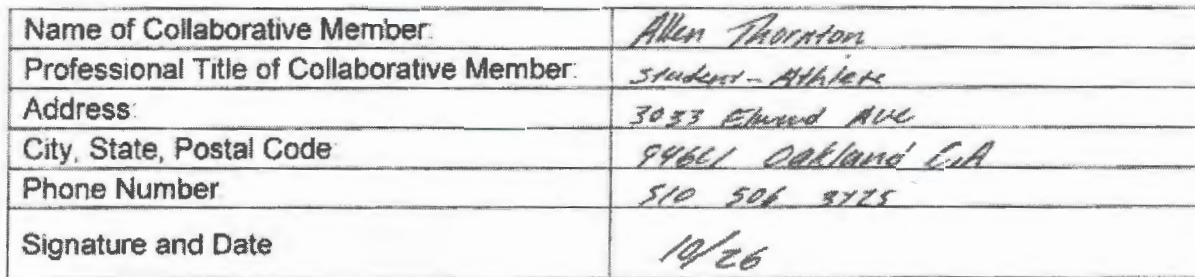 Name of Collaborative Member: Allen Thornton
Professional Title of Collaborative Member: Student-Athlete
Address: 3033 Ave
City, State, Postal Code Oakland CA
Phone Number 510 506
Signature and Date 10/26